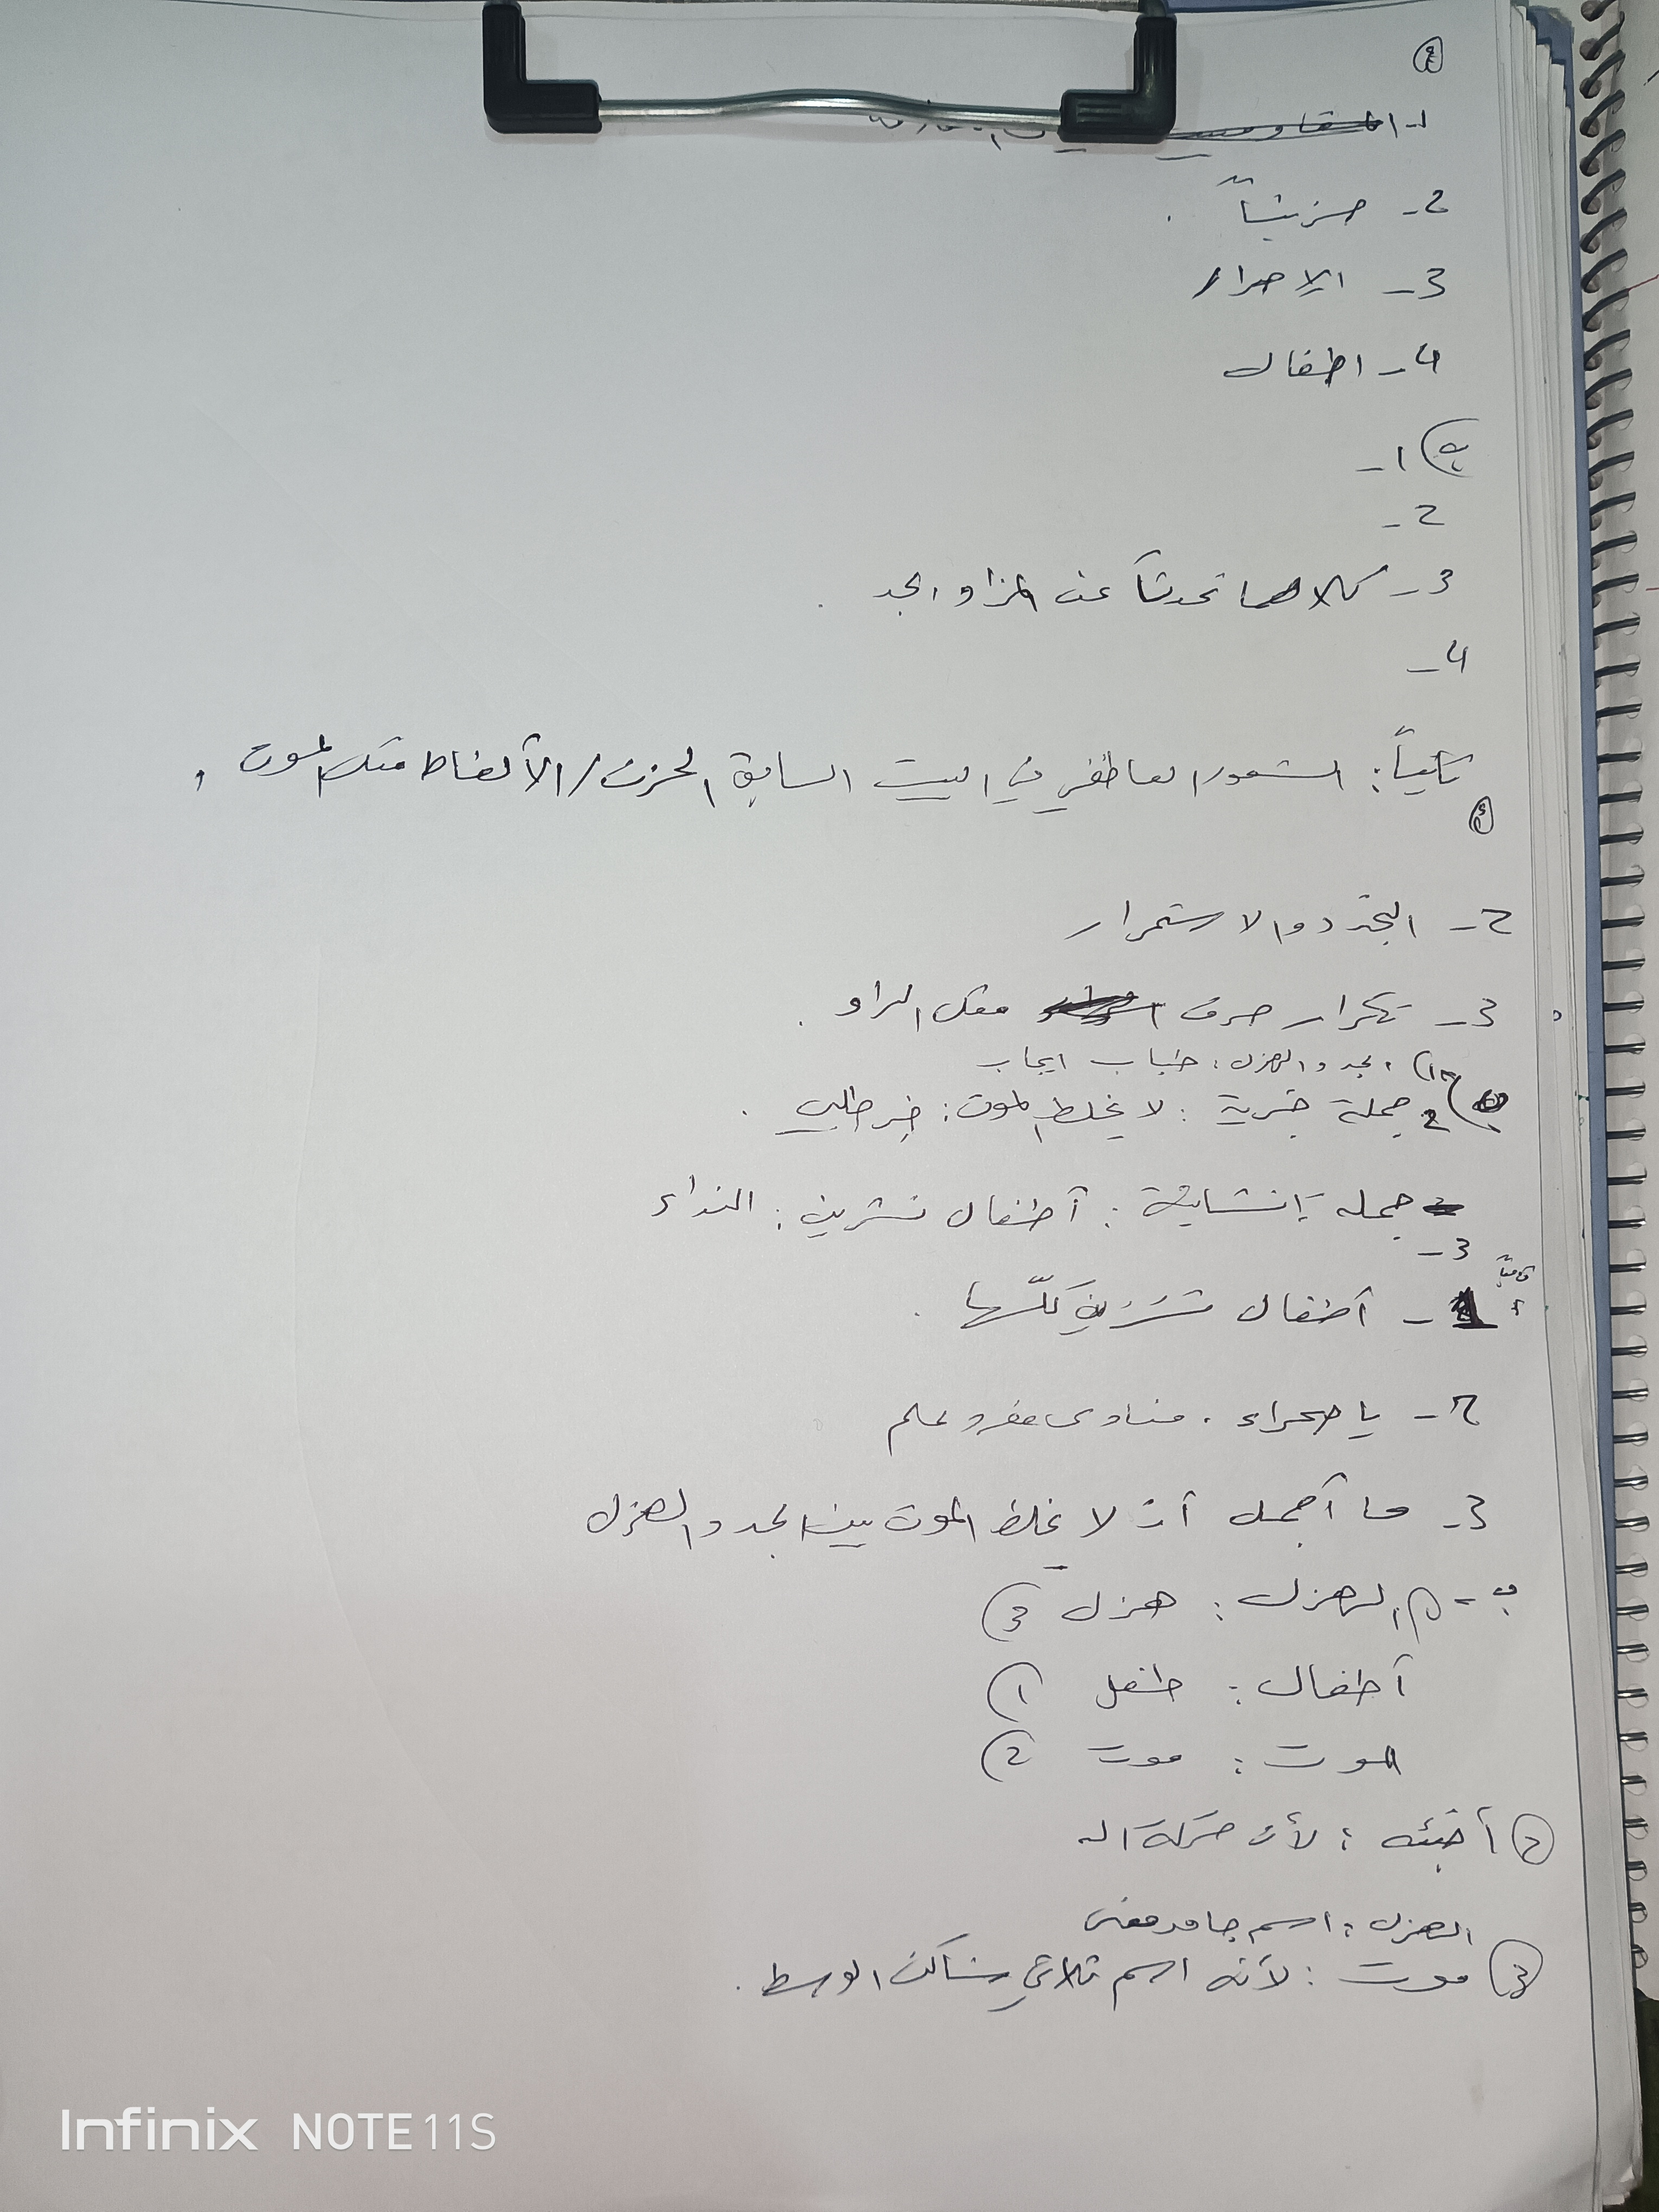 أ
1-
2- حزيناً.
3- الإصرار
4- اطفال
ب) 1-
2-
3- كلاهما تحدثا عن و الجد.
4-
ثانياً: الشعور العاطفي في البيت السابق الحزن / الألفاظ مثل الموت.
أ
2- التجدد والاستمرار
3- تكرار حرف مثل الراو.
1) الجد والهزل: طباب ايجاب
ب) 2. جملة خبرية: لا يخلط الموت: خبر طلبي.
جملة إنشائية: أطفال تشرين: النداء
3-
1- أطفال تشرين كلّها.
2- يا صحراء. منادى مفرد علم
3- ما أجمل أن لا يخلط الموت بين الجد والهزل
ب- 1) الهزل: هزل 3)
أطفال: طفل 1)
الموت: موت 2)
2) أخبئه: لأن حركة الـ
الهزل: اسم جامد معنى
3) موت: لأنه اسم ثلاثي ساكن الوسط.
Infinix NOTE 11S